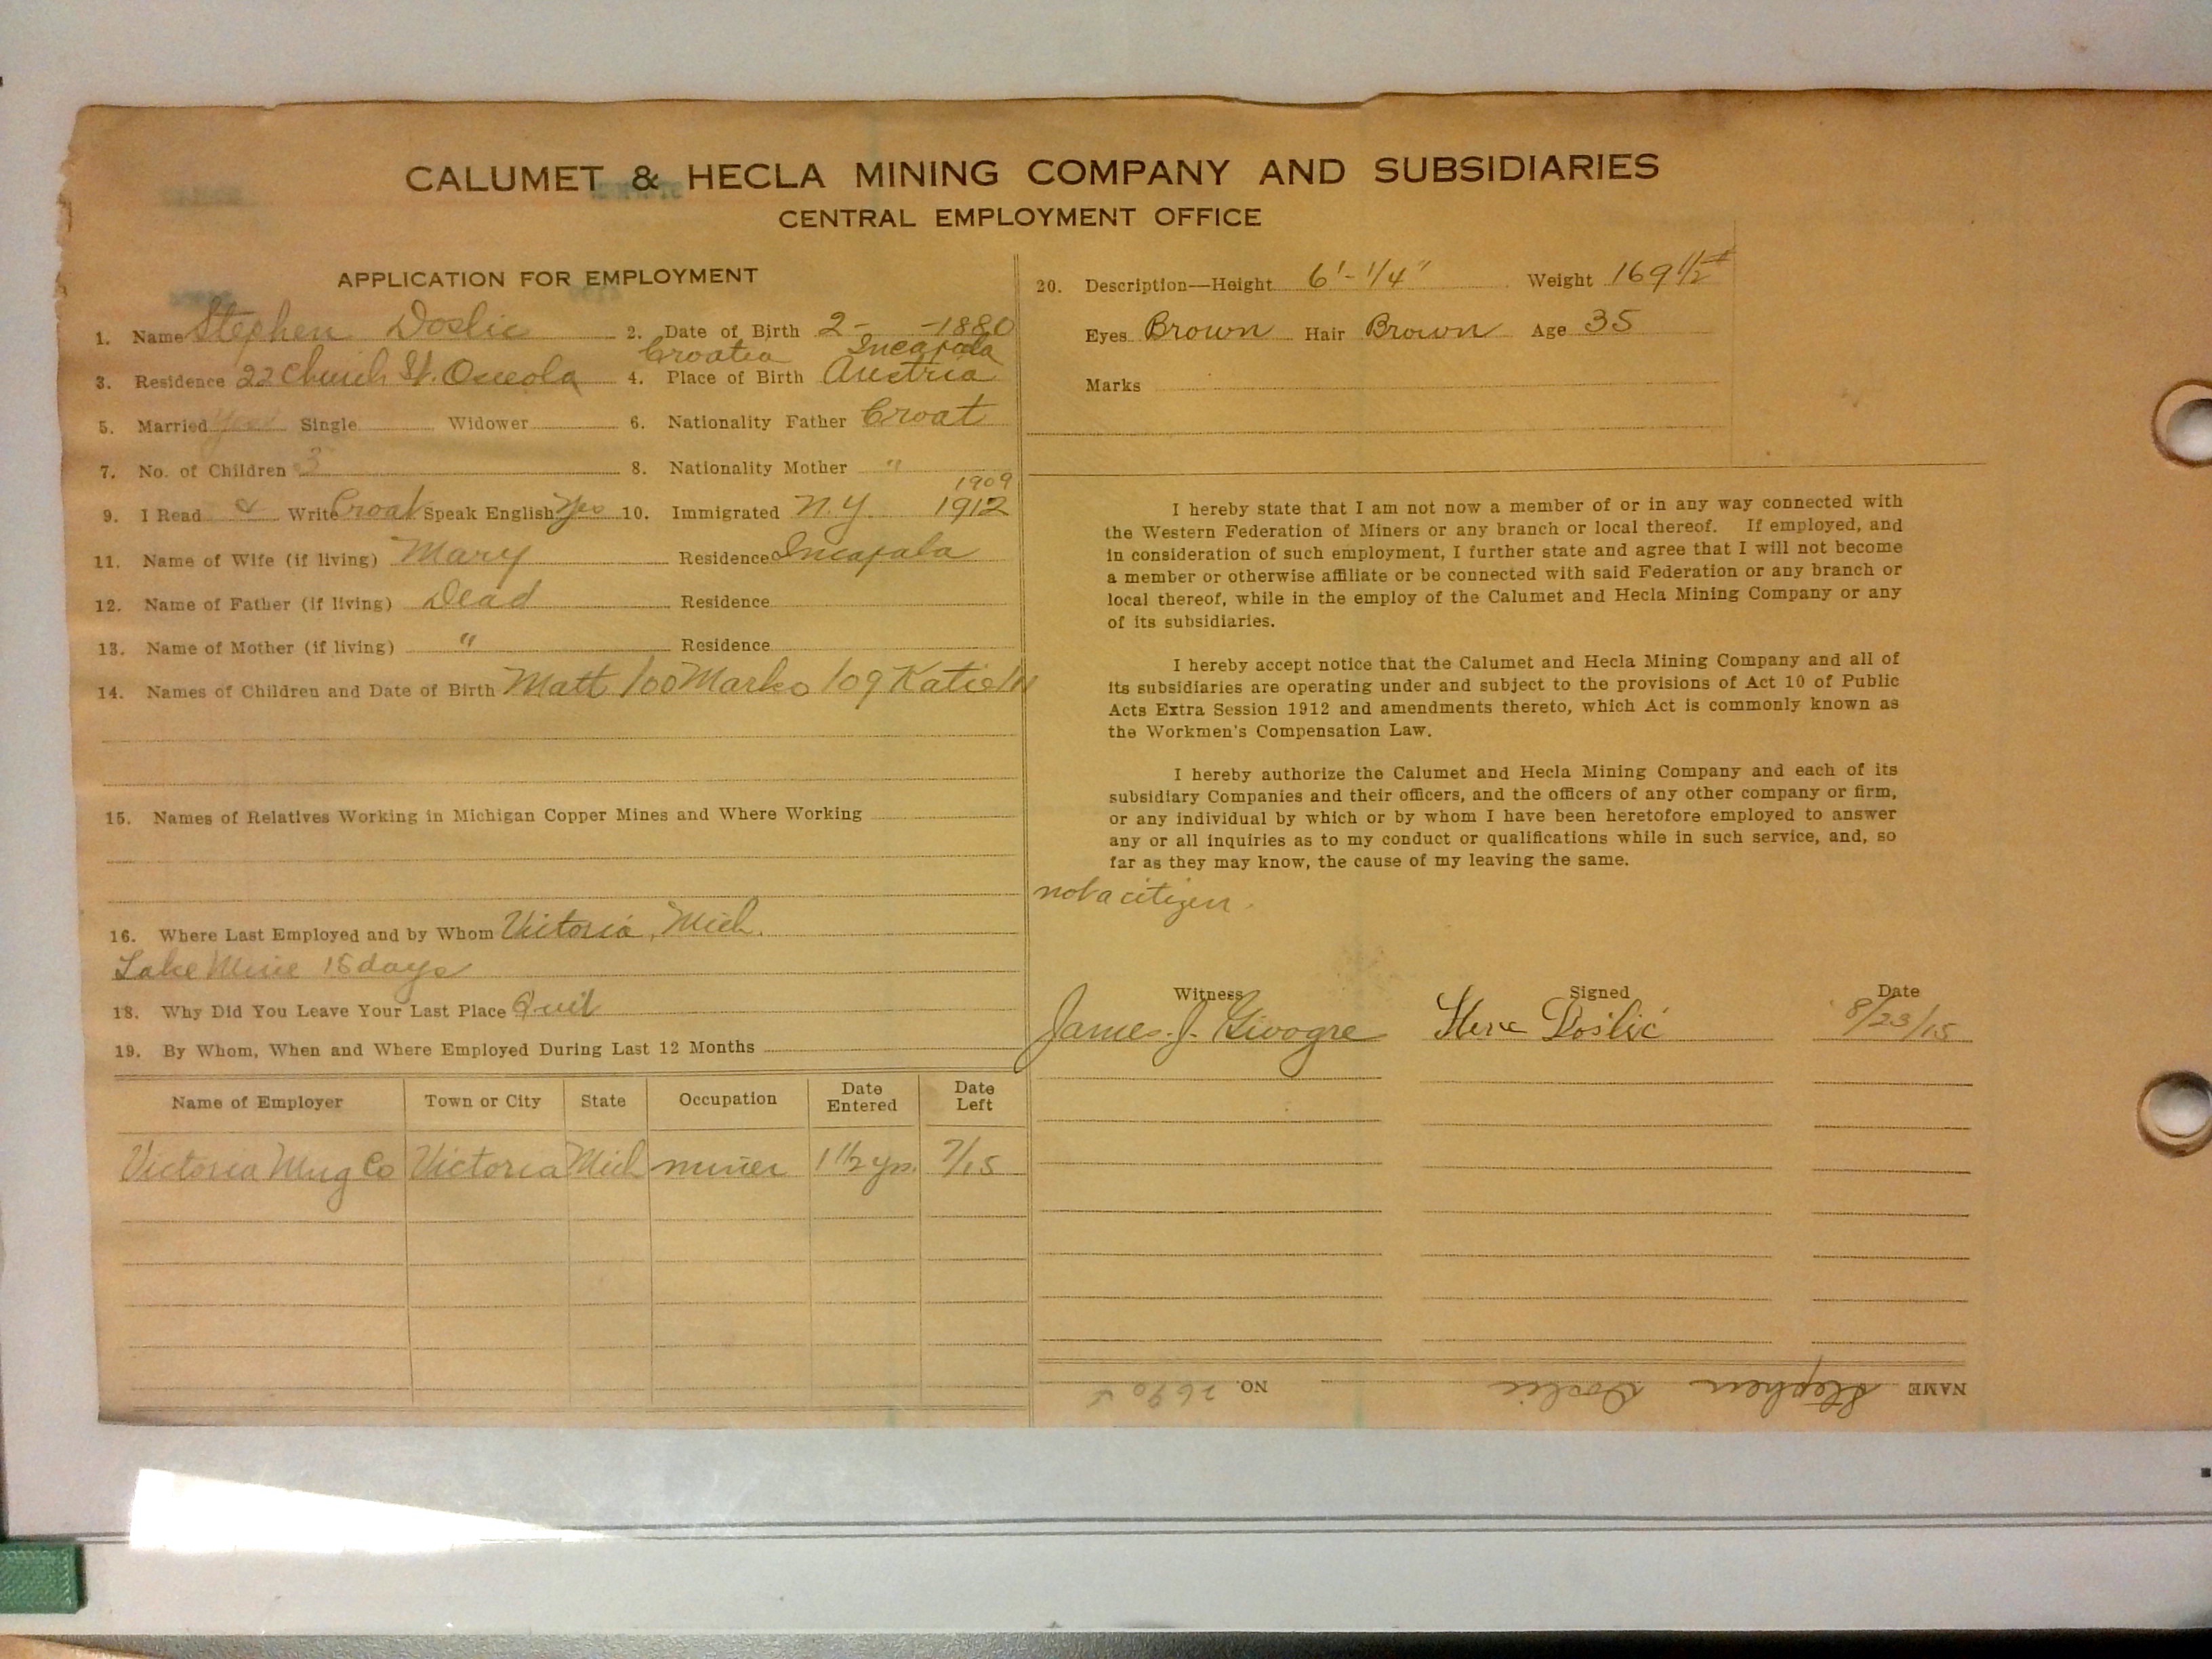 CALUMET & HECLA MINING COMPANY AND SUBSIDIARIES
CENTRAL EMPLOYMENT OFFICE
APPLICATION FOR EMPLOYMENT
1. Name Stephen Doslic 2. Date of Birth 2- -1880
Croatia
3. Residence 22 Church St. Osceola 4. Place of Birth Austria
5. Married Yes Single Widower 6. Nationality Father Croat
7. No. of Children 3 8. Nationality Mother "
1909
9. I Read & Write Croat Speak English Yes 10. Immigrated N.Y. 1912
11. Name of Wife (if living) Mary Residence
12. Name of Father (if living) Dead Residence
13. Name of Mother (if living) " Residence
14. Names of Children and Date of Birth Matt /00 Marko /09 Katie
15. Names of Relatives Working in Michigan Copper Mines and Where Working
16. Where Last Employed and by Whom Victoria, Mich.
Lake Mine 15 days
18. Why Did You Leave Your Last Place Quit
19. By Whom, When and Where Employed During Last 12 Months
Name of Employer Town or City State Occupation Date Entered Date Left
Victoria Mng Co Victoria Mich miner 1 1/2 yrs. 7/15
20. Description—Height 6'-1/4" Weight 169 1/2 #
Eyes Brown Hair Brown Age 35
Marks
I hereby state that I am not now a member of or in any way connected with
the Western Federation of Miners or any branch or local thereof. If employed, and
in consideration of such employment, I further state and agree that I will not become
a member or otherwise affiliate or be connected with said Federation or any branch or
local thereof, while in the employ of the Calumet and Hecla Mining Company or any
of its subsidiaries.
I hereby accept notice that the Calumet and Hecla Mining Company and all of
its subsidiaries are operating under and subject to the provisions of Act 10 of Public
Acts Extra Session 1912 and amendments thereto, which Act is commonly known as
the Workmen's Compensation Law.
I hereby authorize the Calumet and Hecla Mining Company and each of its
subsidiary Companies and their officers, and the officers of any other company or firm,
or any individual by which or by whom I have been heretofore employed to answer
any or all inquiries as to my conduct or qualifications while in such service, and, so
far as they may know, the cause of my leaving the same.
not a citizen.
Witness Signed Date
James J. Doslić 8/23/15
NAME Stephen Doslic NO.